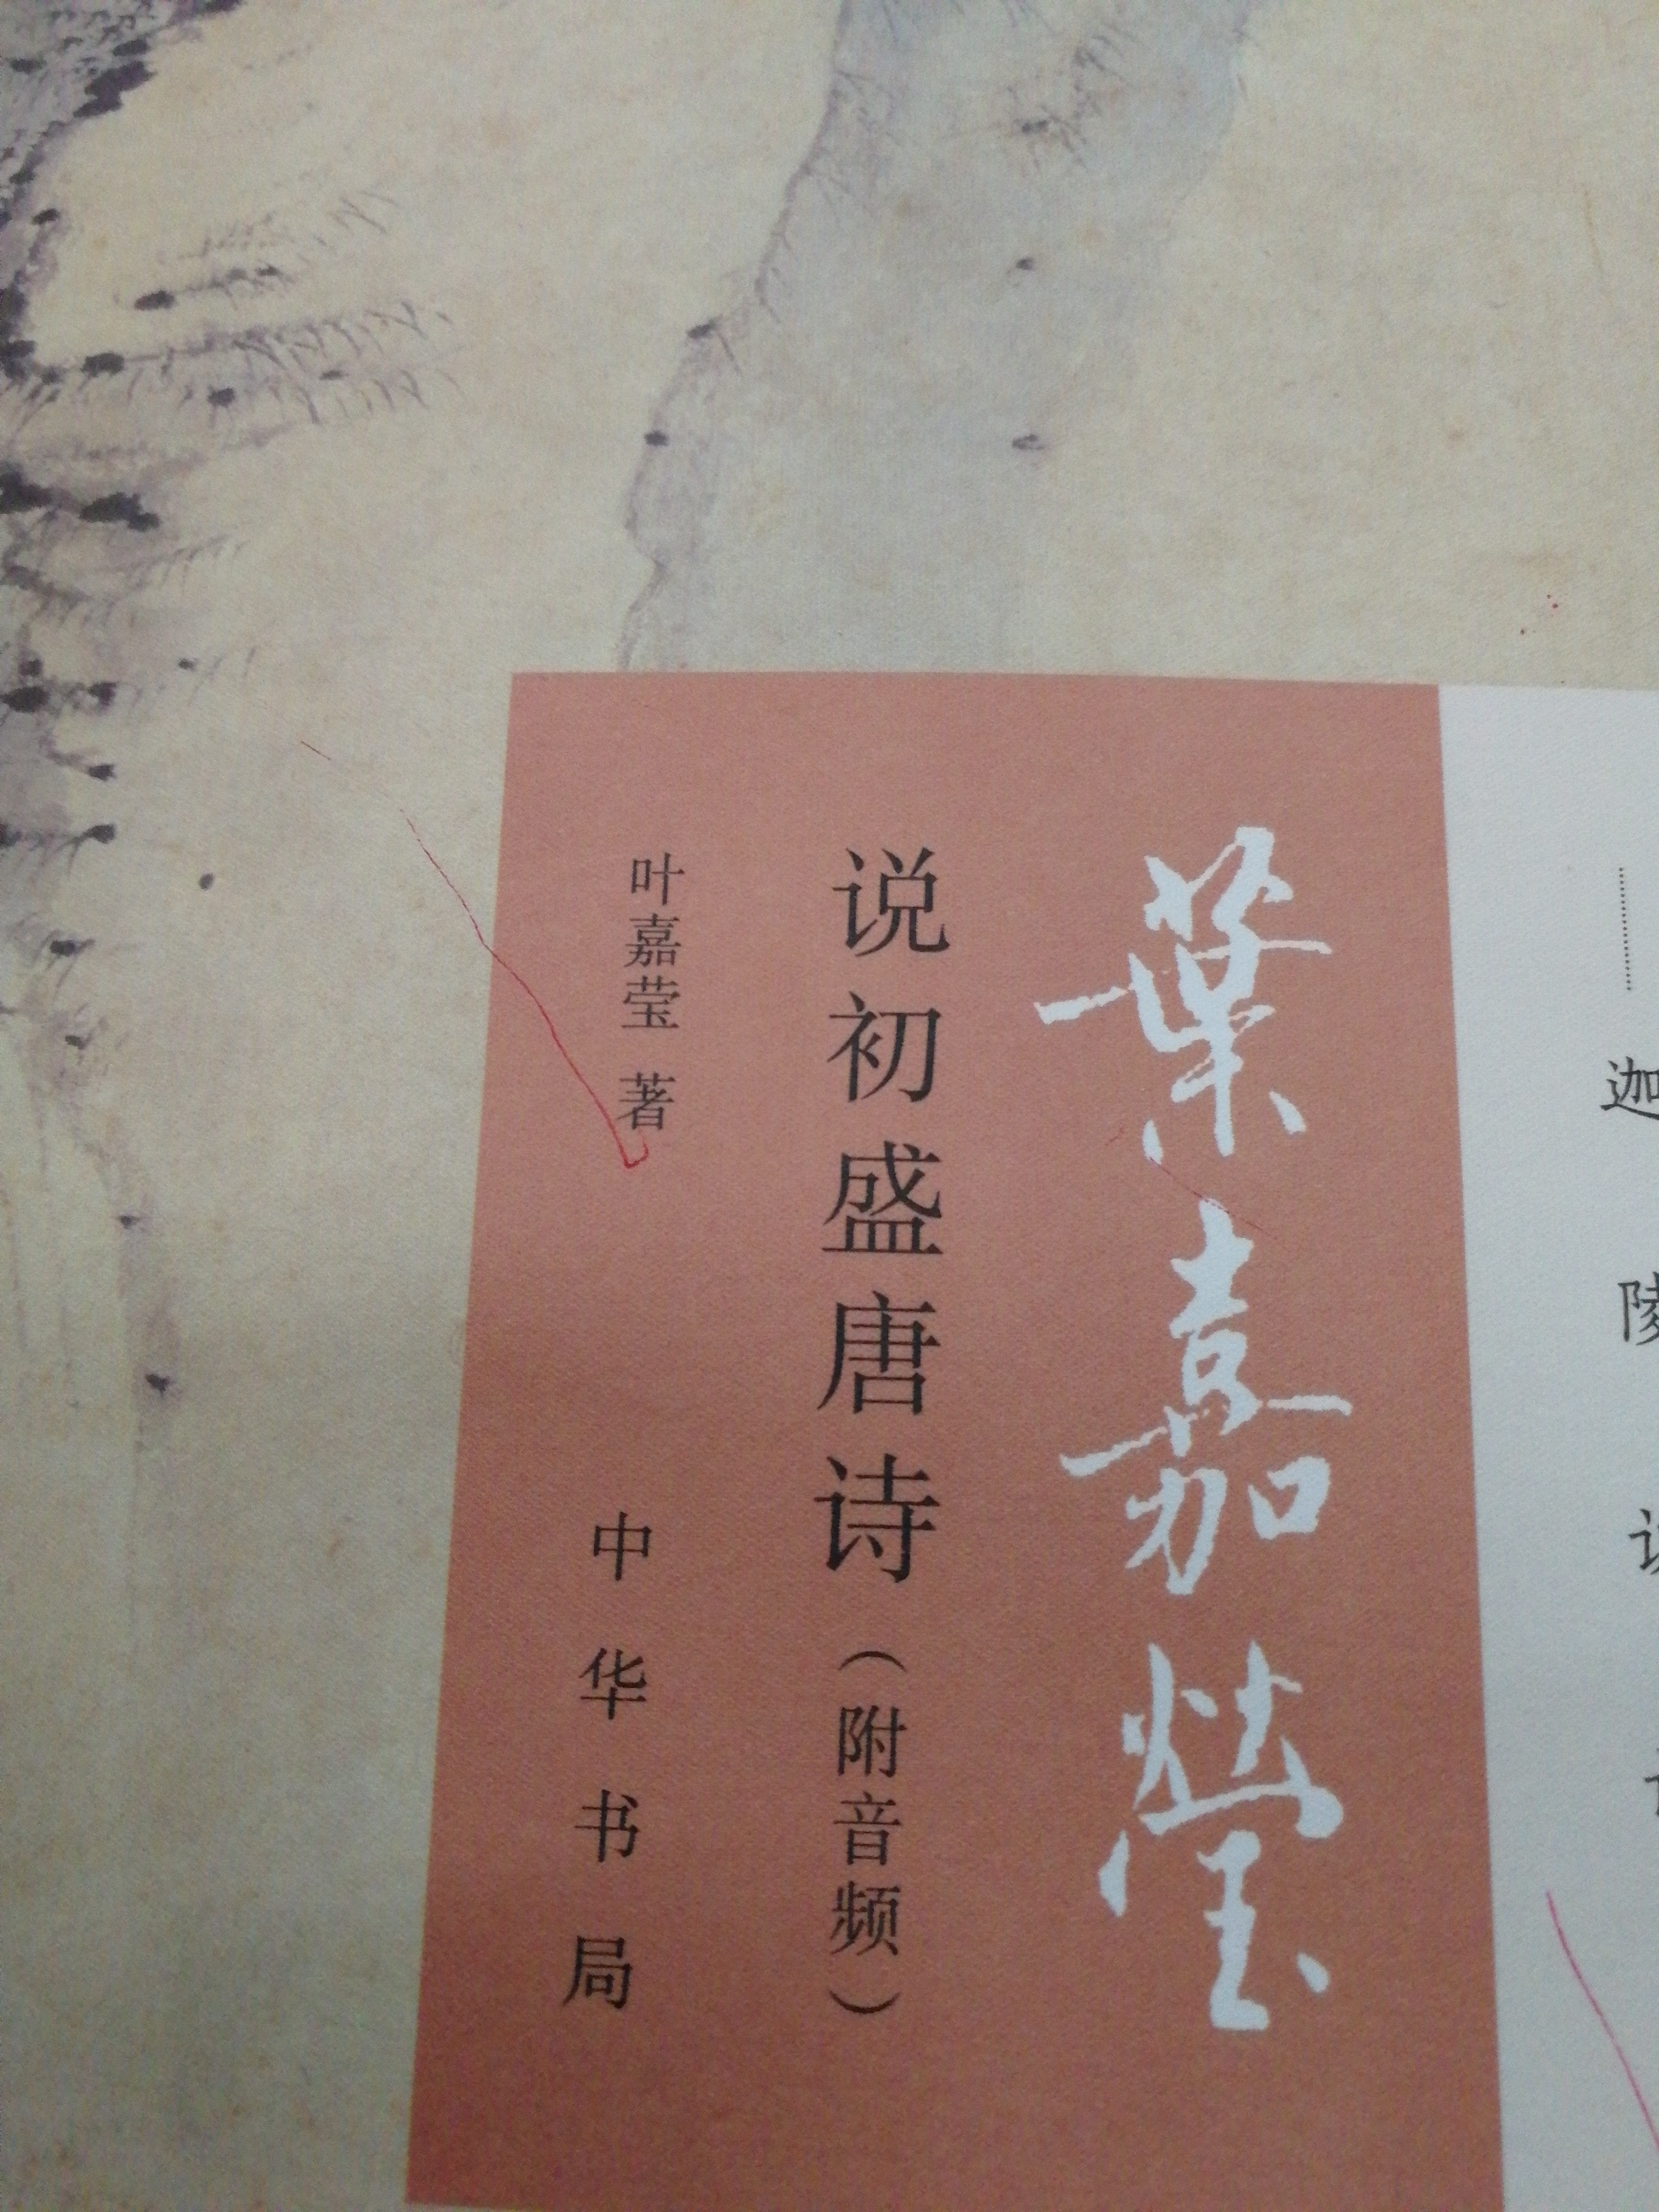 迦陵
葉嘉瑩
说初盛唐诗（附音频）
叶嘉莹 著
中华书局